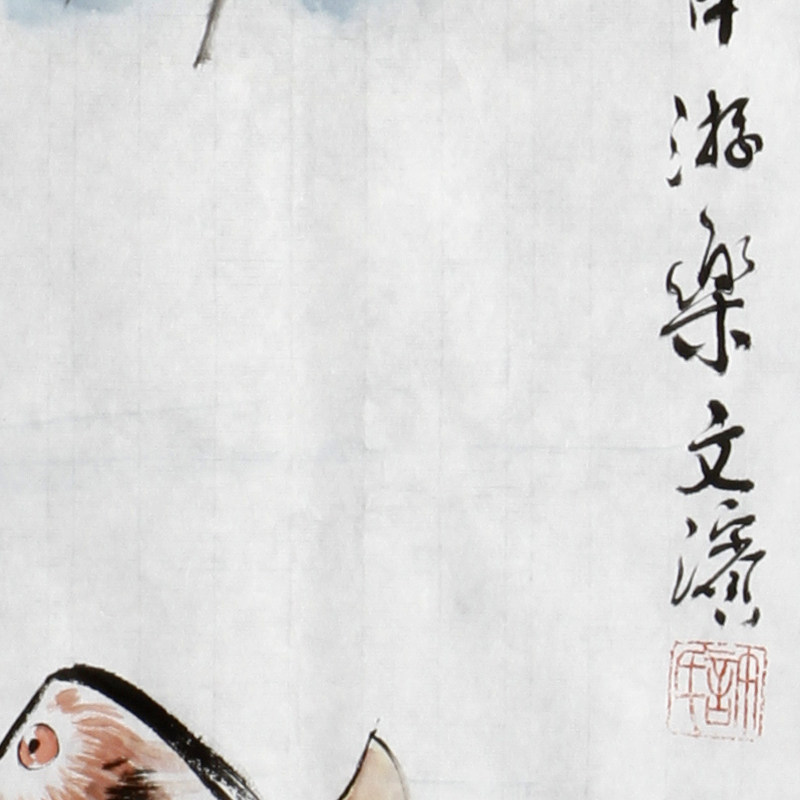 游樂文濱